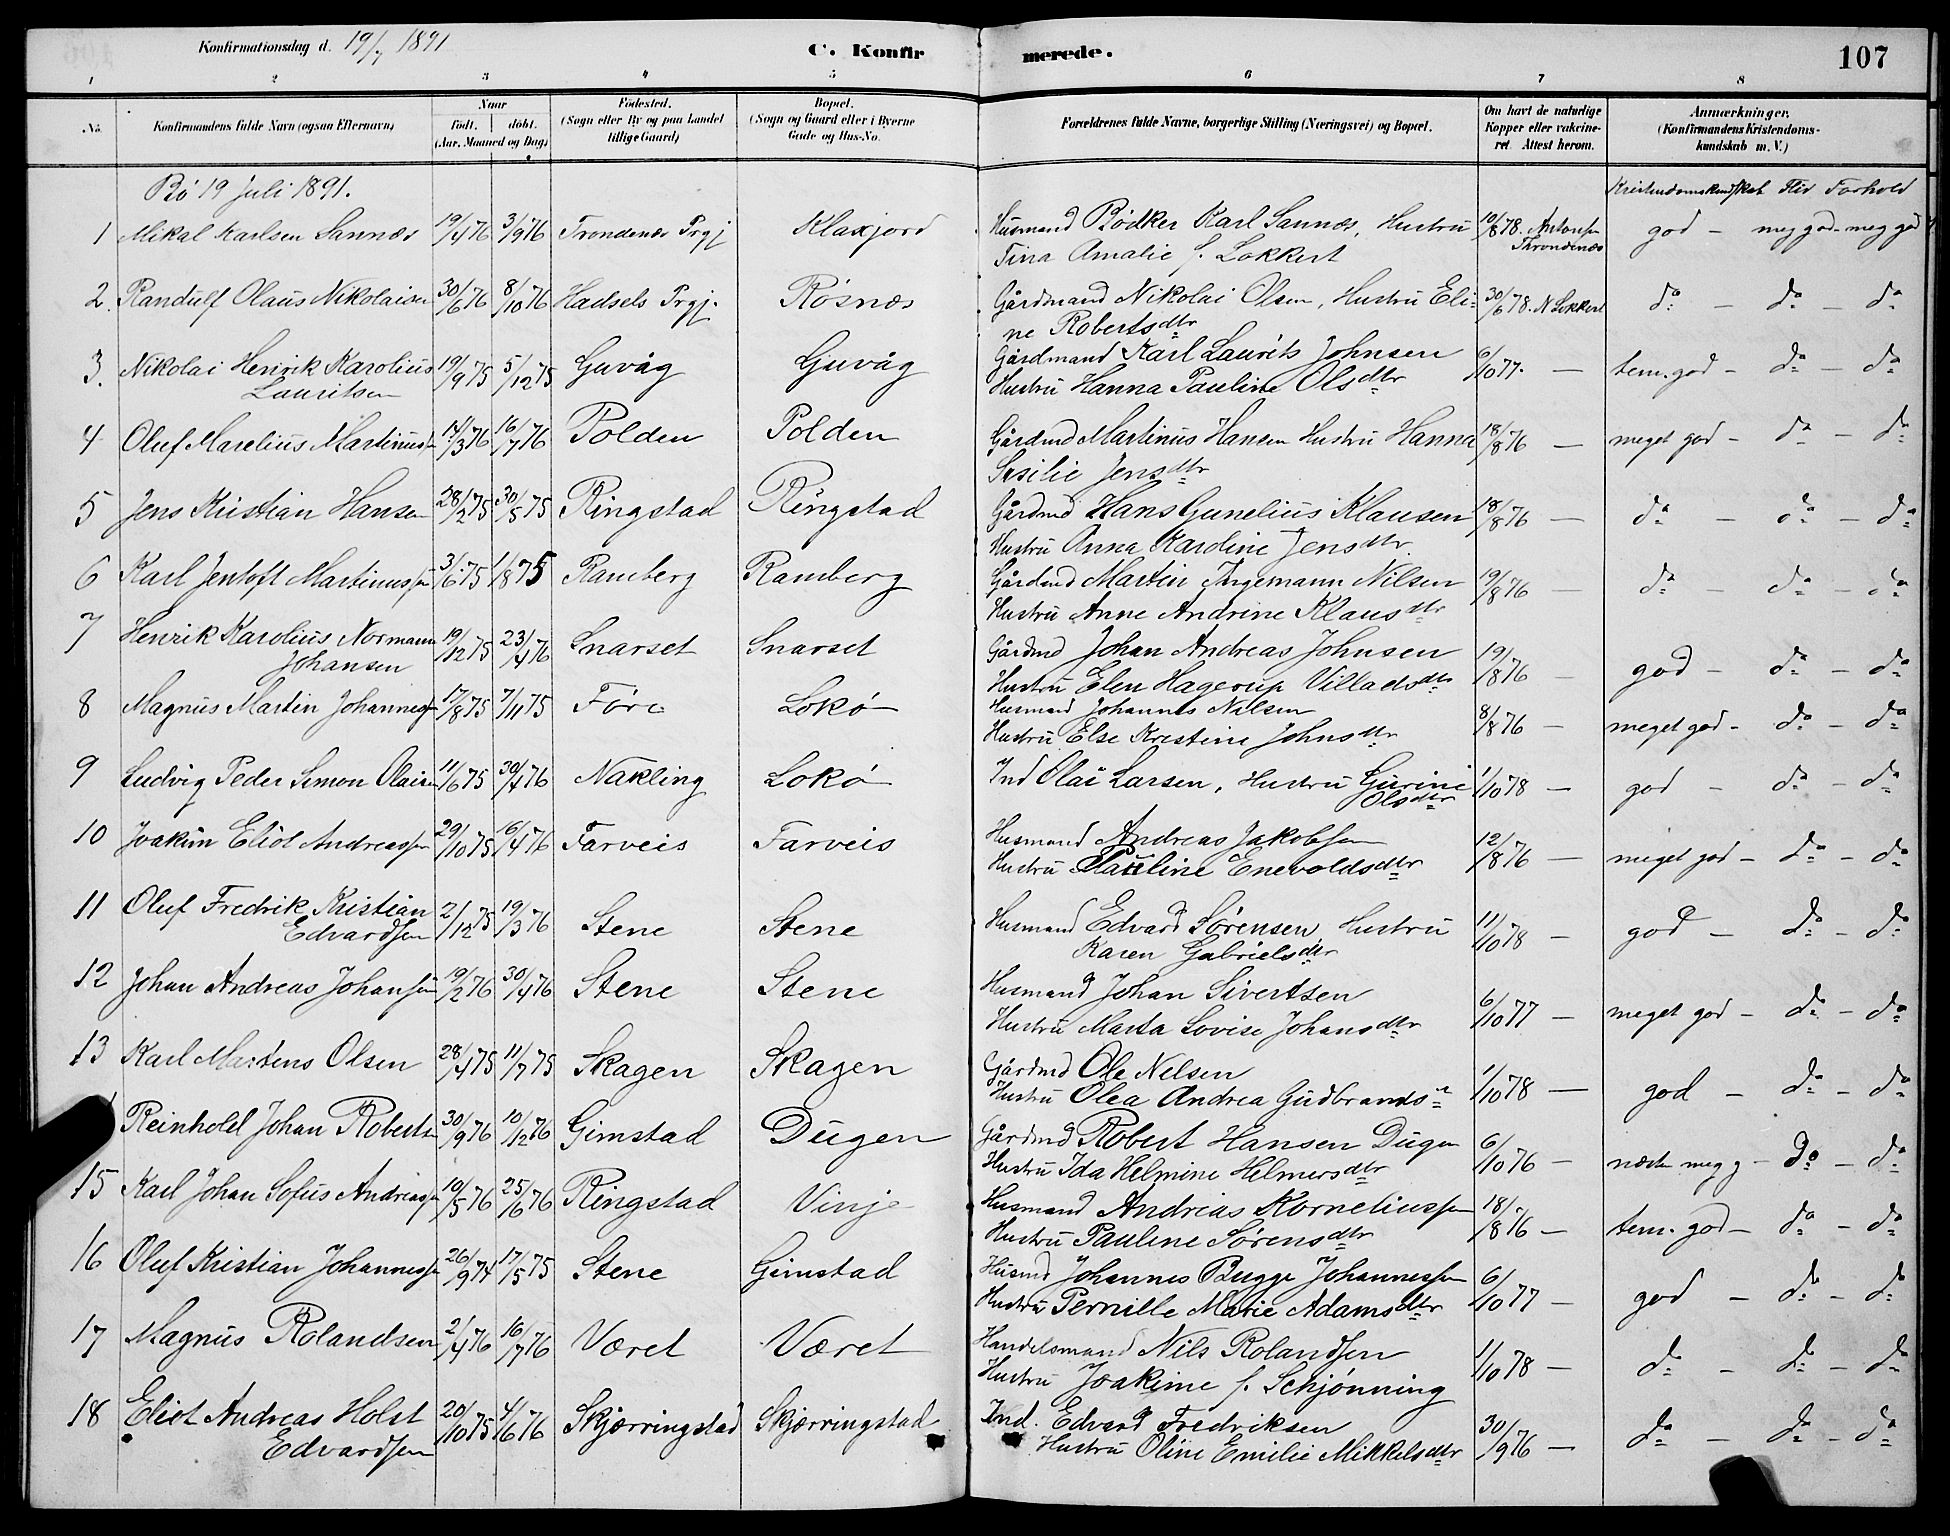 Konfirmationsdag d. 19/7 1891
C. Konfirmerede.
107
1 2 3 4 5 6 7 8
No.
Konfirmandens fulde Navn (ogsaa Efternavn)
Naar
Födt. döbt.
(Aar, Maaned og Dag)
Födested.
(Sogn eller By og paa Landet tillige Gaard)
Bopæl.
(Sogn og Gaard eller i Byerne Gade og Hus-No.
Forældrenes fulde Navne, borgerlige Stilling (Næringsvei) og Bopæl.
Om havt de naturlige Kopper eller vakcineret. Attest herom.
Anmærkninger.
(Konfirmandens Kristendomskundskab m. V.)
Bö 19 Juli 1891.
Kristendomskundskab Flid Forhold
1 Mikal Karlsen Sannes 19/4 76 3/9 76 Trondenæs Prgj Klakjord Husmand Bødker Karl Sannes, Hustru 10/8 78. Antonsen god - meg god - meg god
Tina Amalie f. Lokkert Throndenæs
2. Randulf Olaus Nikolaisen 30/6 76 8/10 76 Hadsels Prgj. Røsnæs Gårdmand Nikolai Olsen, Hustru Eli- 30/6 78. N Lokkert do - do - do
ne Robertsdtr
3. Nikolai Henrik Karolius 19/9 75 5/12 75 Guvåg Guvåg Gårdmand Karl Laurits Johnsen 6/10 77. - tem. god - do - do
Lauritsen Hustru Hanna Pauline Olsdtr
4 Oluf Marelius Martinussen 14/3 76 16/7 76 Polden Polden Gårdmd Martinus Hansen Hustru Hanna 18/8 76 - meget god - do - do
Sesilie Jensdtr
5 Jens Kristian Hansen 28/2 75 30/5 75 Ringstad Ringstad Gårdmd Hans Gunelius Klausen 18/8 76 - do - do - do
Hustru Anna Karoline Jensdtr.
6 Karl Jentoft Martinussen 3/6 75 1/8 75 Ramberg Ramberg Gårdmd Martin Ingemann Nilsen 19/8 76 - do - do - do
Hustru Anne Andrine Klausdtr
7 Henrik Karolius Normann 19/12 75 23/4 76 Snarset Snarset Gårdmd Johan Andreas Johnsen 19/8 76 - god - do - do
Johansen Hustru Elen Hagerup Villadsdtr
8 Magnus Martin Johannesen 17/8 75 7/11 75 Føre Lokø Husmand Johannes Nilsen 8/8 76 - meget god - do - do
Hustru Else Kristine Johnsdtr
9 Ludvig Peder Simon Olaisen 11/6 75 30/4 76 Nakling Lokø Ind Olai Larsen, Hustru Gurine 1/10 78 - god - do - do
Olsdtr
10 Joakim Eliot Andreassen 29/10 75 16/4 76 Farveis Farveis Husmand Andreas Jakobsen 12/8 76 - meget god - do - do
Hustru Pauline Enevoldsdtr
11 Oluf Fredrik Kristian 2/12 75 19/3 76 Stene Stene Husmand Edvard Sørensen Hustru 11/10 78 - god - do - do
Edvardsen Karen Gabrielsdtr
12 Johan Andreas Johansen 19/2 76 30/4 76 Stene Stene Husmand Johan Sivertsen 6/10 77 - meget god - do - do
Hustru Marta Lovise Johansdtr
13 Karl Martens Olsen 28/4 75 11/7 75 Skagen Skagen Gårdmd Ole Nelsen 1/10 78 - god - do - do
Hustru Olea Andrea Gudbrands
Reinhold Johan Robertsen 30/9 76 10/12 76 Gimstad Dugen Gårdmd Robert Hansen Dugen 6/10 76 - næsten meg g - do - do
Hustru Ida Helmine Helmersdtr
15 Karl Johan Sofus Andreassen 10/5 76 25/6 76 Ringstad Vinje Husmand Andreas Korneliussen 18/8 76 - tem. god - do - do
Hustru Pauline Sørensdtr
16 Oluf Kristian Johannessen 26/9 74 17/5 75 Stene Gimstad Husmd Johannes Bugge Johannessen 6/10 77 - god - do - do
Hustru Pernille Marie Adamsdtr
17 Magnus Rolandsen 2/4 76 16/7 76 Været Været Handelsmand Nils Rolandsen 1/10 78 - do - do - do
Hustru Joakime f. Schjønning
18 Eliot Andreas Holst 20/10 75 4/6 76 Skjærringstad Skjærringstad Ind. Edvard Fredriksen 30/9 76 - do - do - do
Edvardsen Hustru Oline Emilie Mikkelsdtr